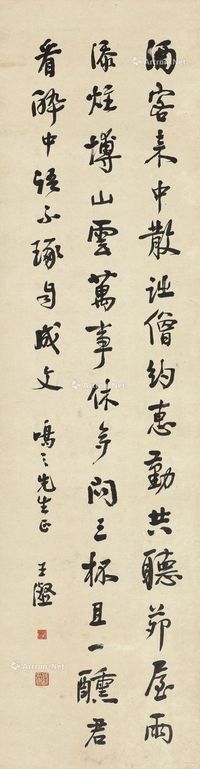 酒客來中散詩僧約惠勤共聽茆屋雨
添炷博山雲萬事休多問三杯且一醺君
看醉中語不琢自成文 鳴之先生正 王瀣